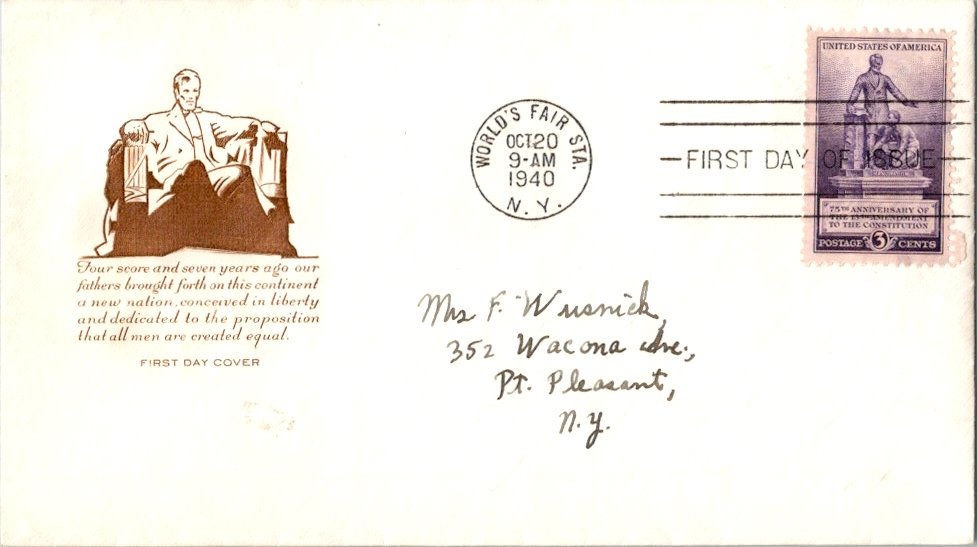 Four score and seven years ago our
fathers brought forth on this continent
a new nation, conceived in liberty
and dedicated to the proposition
that all men are created equal.
FIRST DAY COVER
WORLD'S FAIR STA.
OCT 20
9-AM
1940
N. Y.
FIRST DAY OF ISSUE
UNITED STATES OF AMERICA
75TH ANNIVERSARY OF
THE 13TH AMENDMENT
TO THE CONSTITUTION
POSTAGE 3 CENTS
Mrs F. Wusnick,
352 Wacona Ave.,
Pt. Pleasant,
N.Y.